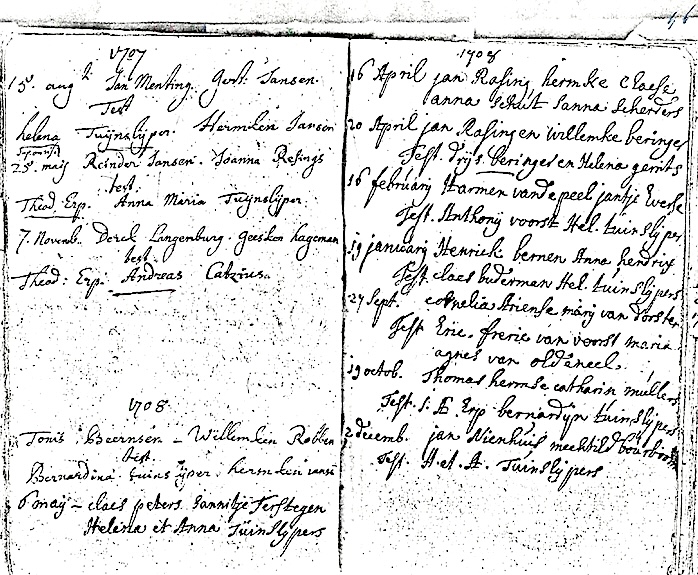 1707
15. aug. Jan Menting. Gert. Jansen.
Test
helena Tuynslyper. Hermken Janson
25. maij Reinder Jansen. Joanna Resings
test.
Theod. Erp. Anna Maria Tuynslyper.
7. Novemb. Derck Lingenburg. Geesken hageman
test.
Theod: Erp. Andreas Catzius.
1708
Tonis Beernsen – Willemken Robben
test.
Bernardina tuinslyper. hermken Jansen
6 may – claes peters Jannitje Terstegen
Helena et Anna Tuinslypers
1708
16 April jan Rasing hermke Claesse
anna Schut Janna Scherders
20 April jan Rasing en willemke beringer
Test. Drijs beringer en Helena gerrits
16 februarij Harmen van de peel jantje Everse
Test. Anthonij voorst Hel. tuinslijper
19 januarij Henrick bernen Anna hendrix
Test. claes buderman Hel. tuinslijpers
27 Sept. cornelia Ariense marij van dorsten
Test. Eric. freric van voorst maria
agnes van oldeneel.
19 octob. Thomas hermse catharin mullers
Test. Erp bernardijn tuinslijpers
2 decemb. jan Nienhuis mechtild
Test. H. et. A. Tuinslijpers